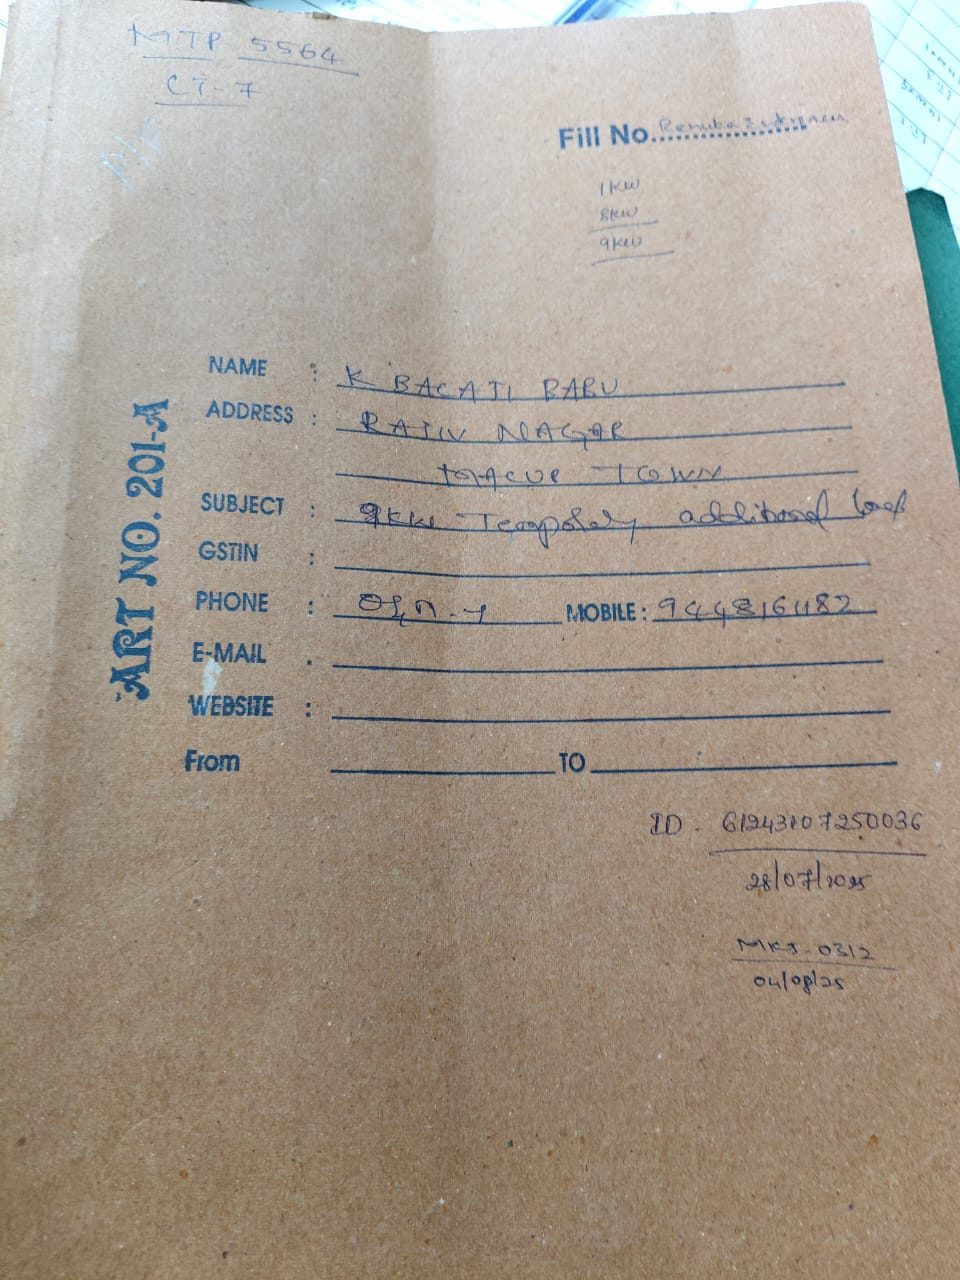 MTP 5564
CT-7
P/F
Fill No. Renuka
1KW
8KW
9KW
ART NO. 201-A
NAME : K BALAJI BABU
ADDRESS : RAJIV NAGAR
TOWN
SUBJECT : 9KW Temporary additional load
GSTIN :
PHONE : MOBILE :
E-MAIL :
WEBSITE :
From TO
ID - 61243107250036
28/07/2025
0312
04/08/25